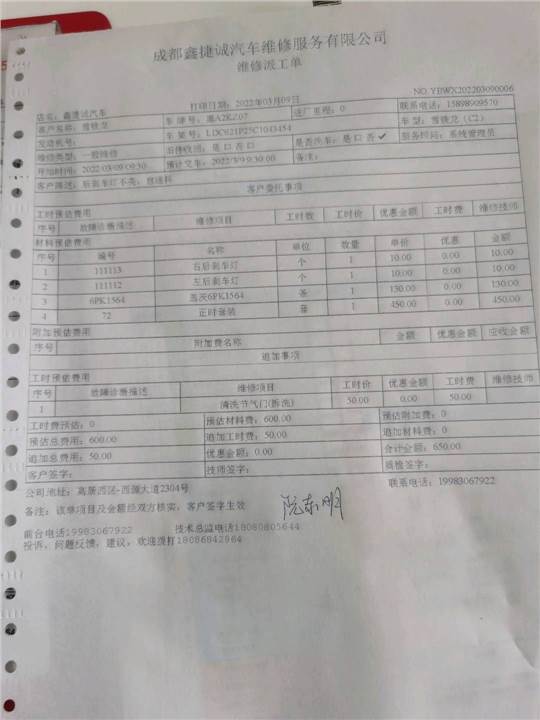 成都鑫捷诚汽车维修服务有限公司
维修派工单
NO.YBWX202203090006
店名: 鑫捷诚汽车 打印日期: 2022年03月09日
客户名称: 雪铁龙 车牌号: 湘A2RZ07 进厂里程: 0 联系电话: 15898909570
发动机号: 车架号: LDC621P25C1043454 车型: 雪铁龙(C2)
维修类型: 一般维修 旧件收回: 是口 否口 是否洗车: 是口 否✓ 服务顾问: 系统管理员
开始时间: 2022/03/09 09:30 预计交车: 2022/3/9 9:30:00 备注:
客户描述: 后刹车灯不亮,
客户委托事项
工时预估费用
序号 故障诊断描述 维修项目 工时数 工时价 优惠金额 工时费 维修技师
材料预估费用
序号 编号 名称 单位 数量 单价 优惠 金额
1 111113 右后刹车灯 个 1 10.00 0.00 10.00
2 111112 左后刹车灯 个 1 10.00 0.00 10.00
3 6PK1564 盖茨6PK1564 条 1 130.00 0.00 130.00
4 72 正时套装 套 1 450.00 0.00 450.00
附加预估费用
序号 附加费名称 金额 优惠金额 应收金额
追加事项
工时预估费用
序号 故障诊断描述 维修项目 工时价 优惠金额 工时费 维修技师
1 清洗节气门(拆洗) 50.00 0.00 50.00
工时费预估: 0 预估材料费: 600.00 预估附加费: 0
预估总费用: 600.00 追加工时费: 50.00 追加材料费: 0
追加总费用: 50.00 优惠金额: 0.00 合计金额: 650.00
客户签字: 技师签字: 质检签字:
公司地址: 高新西区-西源大道2304号 联系电话: 19983067922
备注: 该单项目及金额经双方核实, 客户签字生效
阮东明
前台电话19983067922 技术总监电话18080805644
投诉, 问题反馈, 建议, 欢迎拨打18086842964